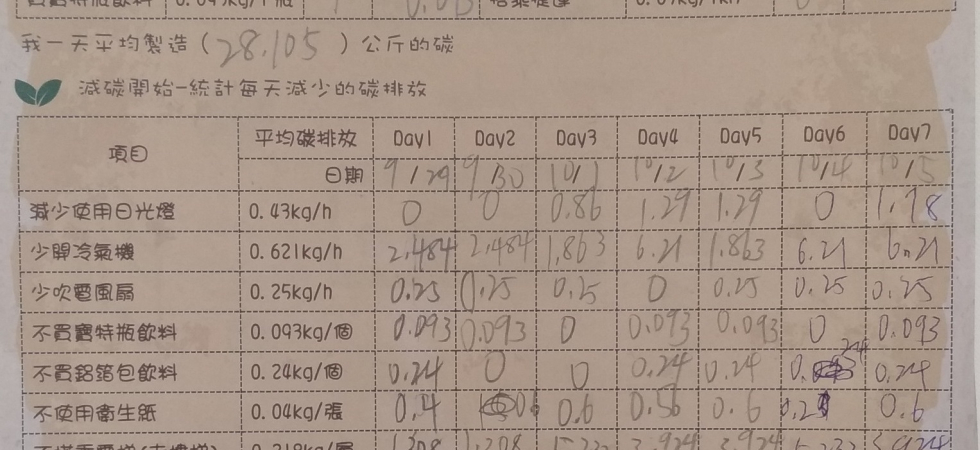 我一天平均製造（28.105）公斤的碳
減碳開始-統計每天減少的碳排放
項目 平均碳排放 Day1 Day2 Day3 Day4 Day5 Day6 Day7
日期 9/29 9/30 10/1 10/2 10/3 10/4 10/5
減少使用日光燈 0.43kg/h 0 0 0.86 1.29 1.29 0
少開冷氣機 0.621kg/h 2.484 2.484 1.863 6.21 1.863 6.21 6.21
少吹電風扇 0.25kg/h 0.25 0.25 0.25 0 0.25 0.25 0.25
不買寶特瓶飲料 0.093kg/個 0.093 0.093 0 0.093 0.093 0 0.093
不買鋁箔包飲料 0.24kg/個 0.24 0 0 0.24 0.24 0.24 0.24
不使用衛生紙 0.04kg/張 0.4 0.6 0.56 0.6 0.6